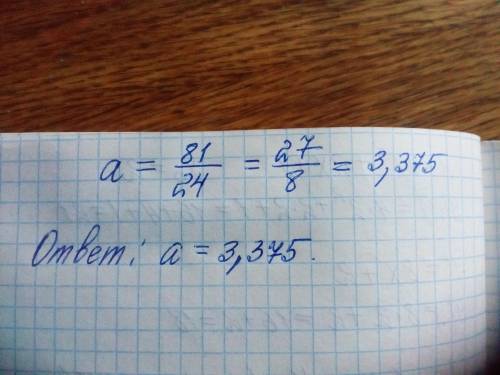 a = 81/24 = 27/8 = 3,375
Ответ: a = 3,375.